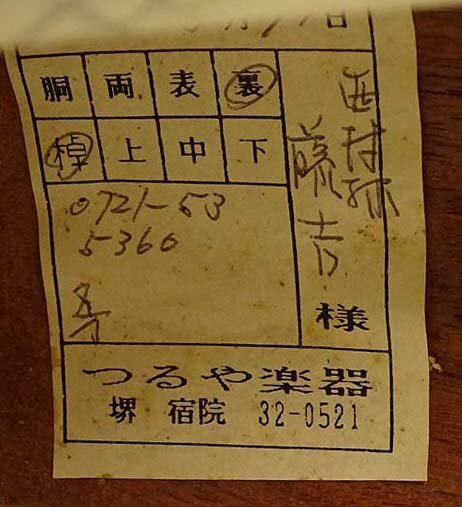 日
胴 両 表 裏
棹 上 中 下
0721-53
5366
西村弥
藤吉
様
つるや楽器
堺 宿院 32-0521